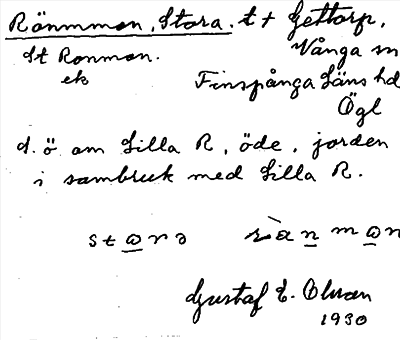 Rönmmon, Stora. t + Gettorp,
St Ronmon. Vånga sn
ek Finspånga Läns hd
Ögl
d. ö om Lilla R, öde, jorden
i sambruk med Lilla R.
Gustaf E. Olsson
1930